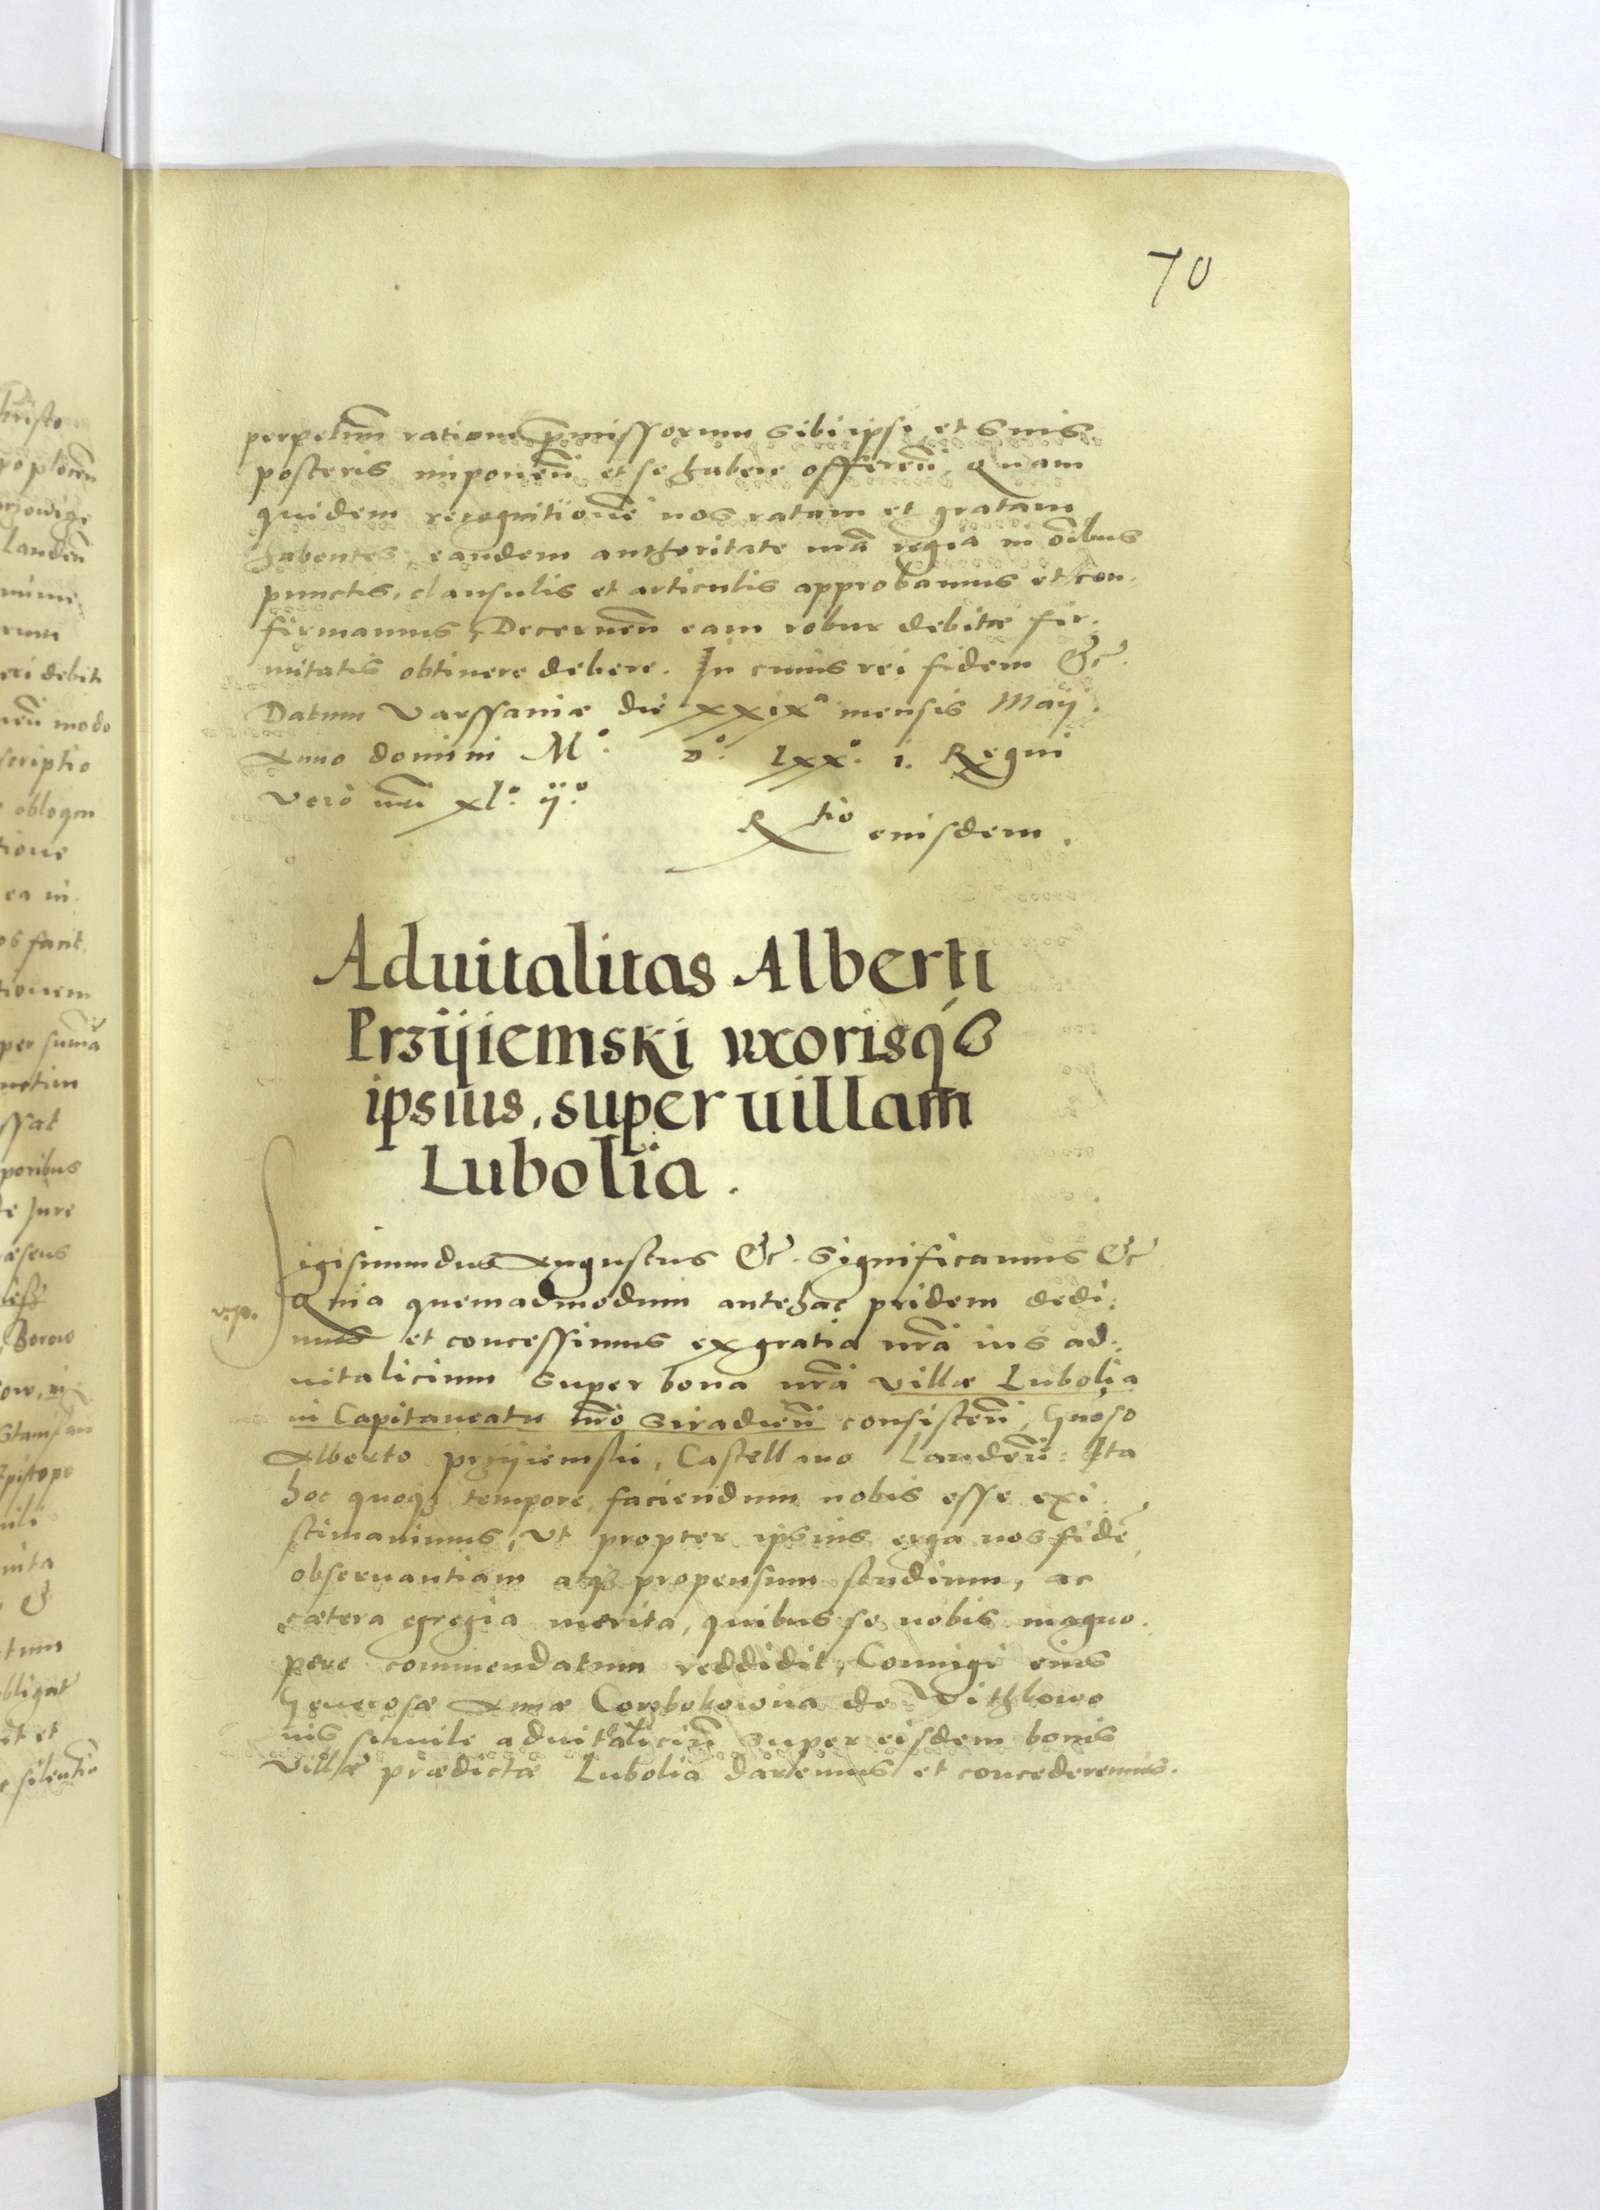 70
perpetuū ratione p̄missorum sibi ipsi et suis
posteris imponeñ et se habere offereñ. Quam
quidem recognitionē nos ratam et gratam
habentes, eandem authoritate nrā regia in oībus
punctis, clausulis et articulis approbamus et con-
firmamus, Decerneñ eam robur debitæ fir-
mitatis obtinere debere. In cuius rei fidem &c.
Datum Varssauiæ die xxixᵃ mensis Maij.
Anno domini Mº. Dº. lxxº. i. Regni
Vero nrī xlº. ijº.
Rtio eiusdem.
Aduitalitas Alberti
Przijiemski uxorisq3
ipsius, super uillam
Lubolia.
Sigismundus Augustus &c. Significamus &c
v.p.
Quia quemadmodum antehac pridem dedi-
mus et concessimus ex gratia nrā ius ad-
uitalicium super bona nrā villæ Lubolia
in Capitaneatu nrō Siradieñ consisteñ, Gnoso
Alberto przijiemski, Castellano Landeñ: Ita
hoc quoq3 tempore faciendum nobis esse exi-
stimauimus, Vt propter ipsius erga nos fidē,
obseruantiam atq3 propensum studium, ac
cætera egregia merita, quibus se nobis magno-
pere commendatum reddidit, Coniugi eius
Generosæ Annæ de Vithkowo
ius simile aduitaliciū super eisdem bonis
Villæ prædictæ Lubolia daremus et concederemus.